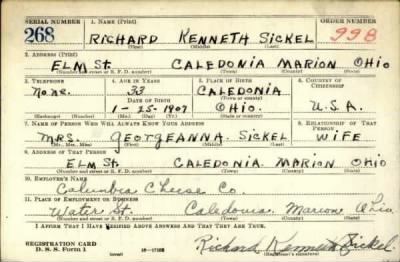 SERIAL NUMBER 1. NAME (Print) ORDER NUMBER
268 RICHARD KENNETH SICKEL 998
(First) (Middle) (Last)
2. ADDRESS (Print)
ELM St. CALEDONIA MARION OHIO
(Number and street or R. F. D. number) (Town) (County) (State)
3. TELEPHONE 4. AGE IN YEARS 5. PLACE OF BIRTH 6. COUNTRY OF CITIZENSHIP
None. 33 CALEDONIA
DATE OF BIRTH (Town or county)
1-25-1907 OHIO. U.S.A.
(Exchange) (Number) (Mo.) (Day) (Yr.) (State or country)
7. NAME OF PERSON WHO WILL ALWAYS KNOW YOUR ADDRESS 8. RELATIONSHIP OF THAT PERSON
MRS. GEORGEANNA. SICKEL WIFE
(Mr., Mrs., Miss) (First) (Middle) (Last)
9. ADDRESS OF THAT PERSON
ELM St. CALEDONIA. MARION OHIO
(Number and street or R. F. D. number) (Town) (County) (State)
10. EMPLOYER'S NAME
Columbia Cheese Co.
11. PLACE OF EMPLOYMENT OR BUSINESS
Water St. Caledonia. Marion Ohio.
(Number and street or R. F. D. number) (Town) (County) (State)
I AFFIRM THAT I HAVE VERIFIED ABOVE ANSWERS AND THAT THEY ARE TRUE.
REGISTRATION CARD
D. S. S. Form 1 (over) Richard Kenneth Sickel.
(Registrant's signature)